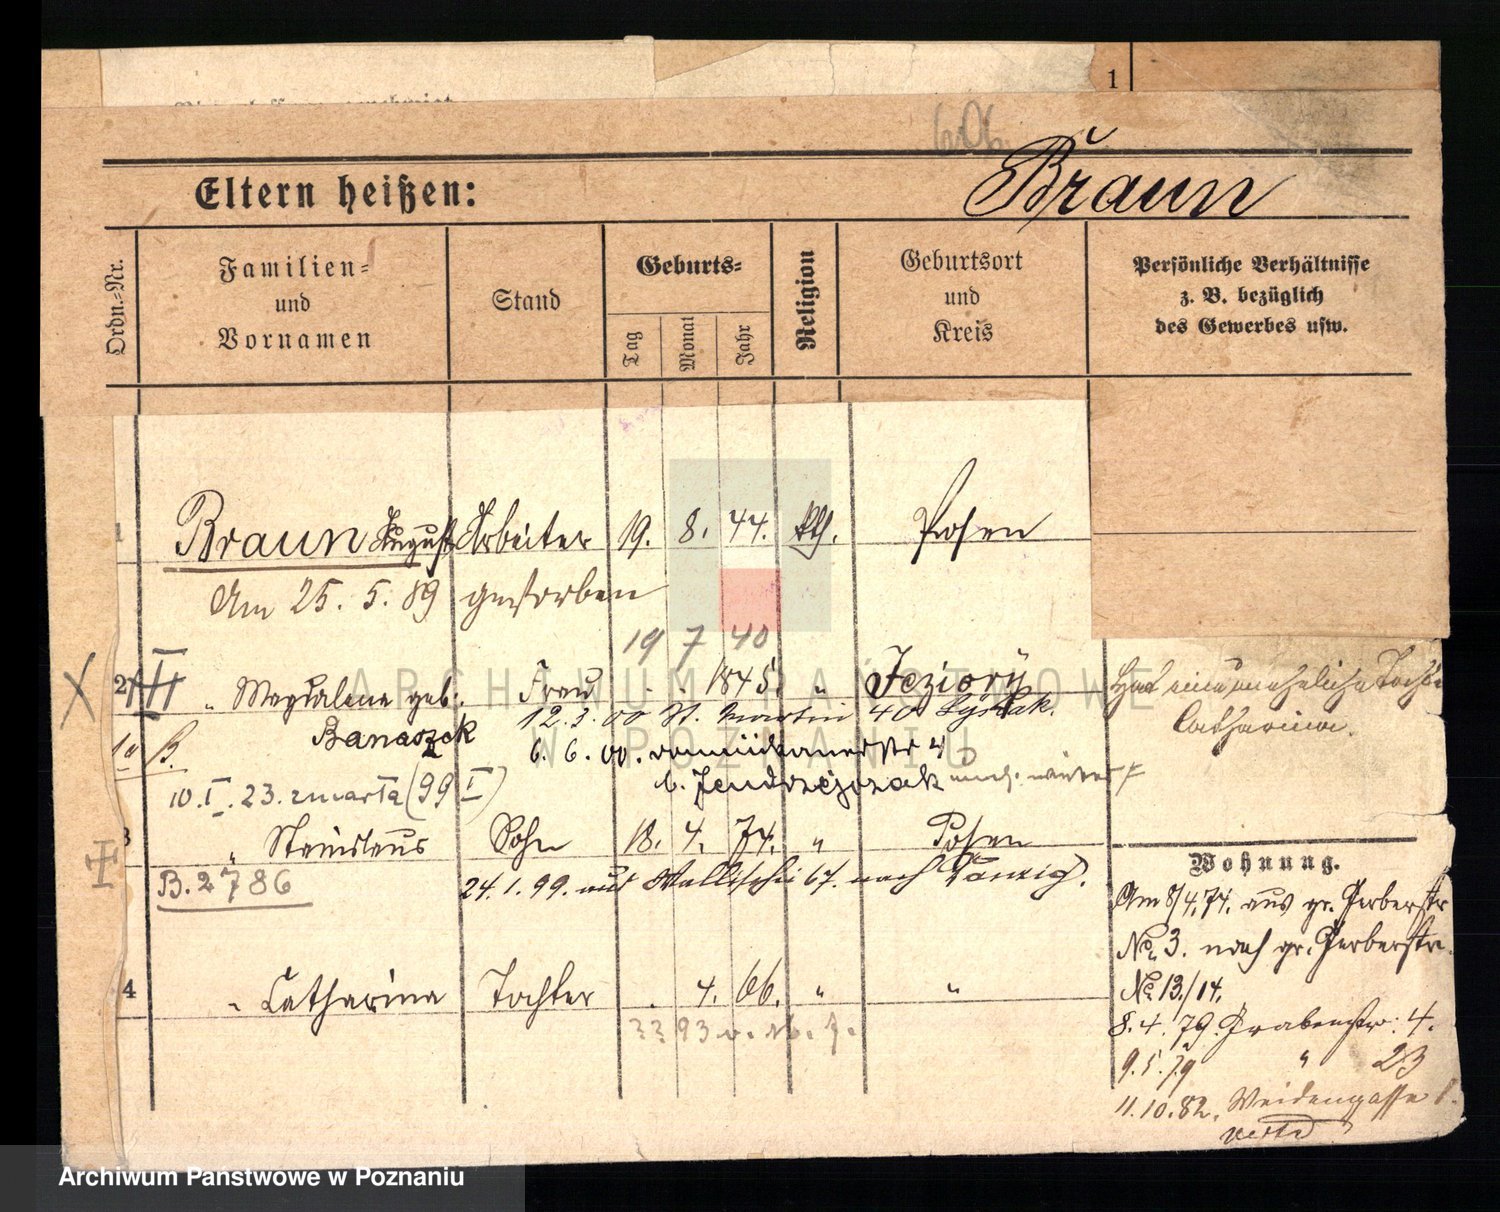 1
606
Eltern heißen:
Braun
Ordn.-Nr.
Familien-
und
Vornamen
Stand
Geburts-
Tag
Monat
Jahr
Religion
Geburtsort
und
Kreis
Persönliche Verhältnisse
z. B. bezüglich
des Gewerbes usw.
Braun August Arbeiter 19. 8. 44. kth. Posen
Am 25. 5. 89 gestorben
19 7 40
2 " Magdalena geb. Frau . . 1845. " Jeziory
Banaszak
12.3.00 St. Martin 40 b. Lysiak.
6.6.00. 4
b. Jendrzejczak
10.I.23. zmarła (99 I)
Hat eine uneheliche Tochter
Catharina.
" Stanislaus Sohn 18. 4. 74. " Posen
B. 2786
24.1.99. aus Wallischei 67. nach Danzig.
4 " Catharina Tochter . 4. 66. " "
Wohnung.
Am 8/4.74. aus gr. Gerberstr
No. 3. nach gr. Gerberstr.
No. 13./14.
8.4.79. Grabenstr. 4.
9.5.79 " 23
11.10.82. Weidengasse 1.
verte
ARCHIWUM PAŃSTWOWE
W POZNANIU
Archiwum Państwowe w Poznaniu